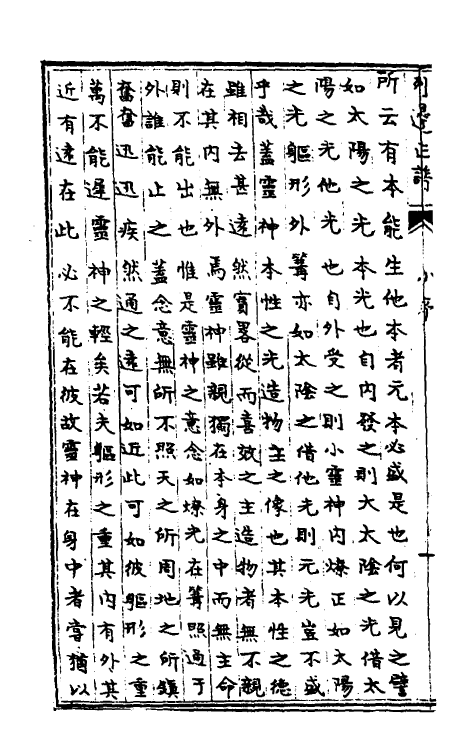 所云有本能生他本者元本必盛是也何以見之譬
如太陽之光本光也自內發之則大太陰之光借太
陽之光他光也自外受之則小靈神內燎正如太陽
之光軀形外篝亦如太陰之借他光則元光豈不盛
乎哉蓋靈神本性之光造物主之像也其本性之德
雖相去甚遠然實畧從而喜效之主造物者無不親
在其內無外焉靈神雖親獨在本身之中而無主命
則不能出也惟是靈神之意念如燎光在篝照過于
外誰能止之蓋念意無所不照天之所周地之所鎮
奮奮迅迅疾然通之遠可如近此可如彼軀形之重
萬不能遲靈神之輕矣若夫軀形之重其內有外其
近有遠在此必不能在彼故靈神在身中者寧猶以